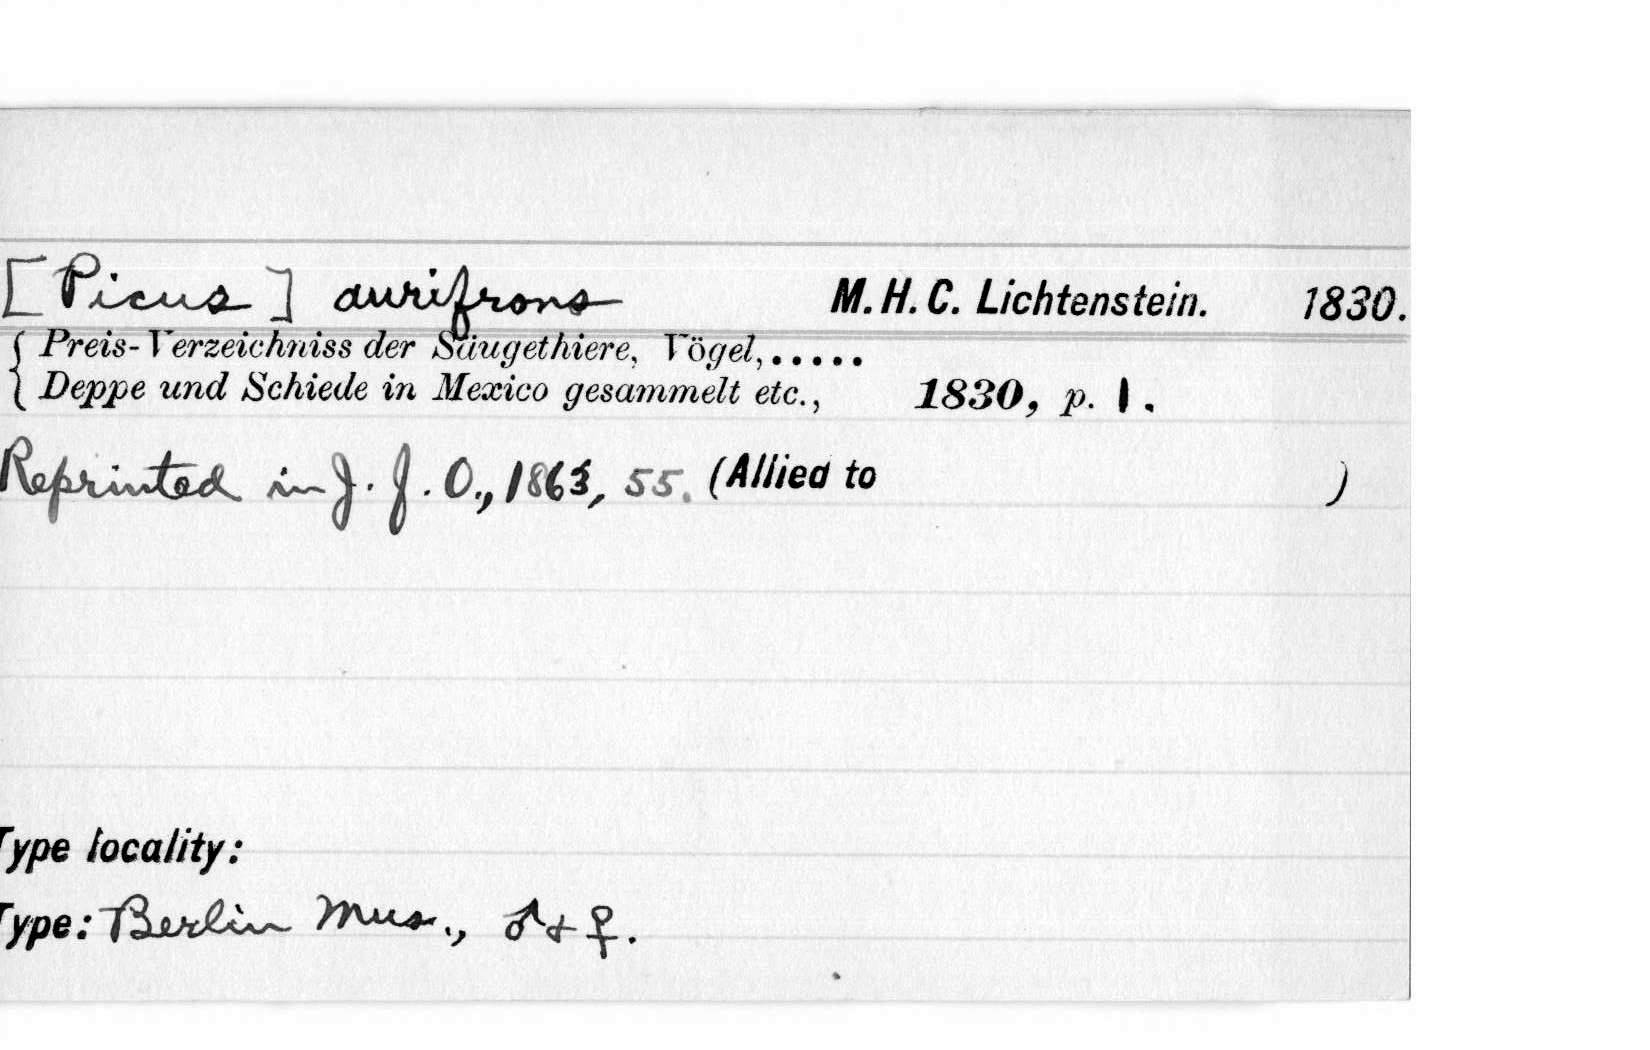 [Picus] aurifrons M. H. C. Lichtenstein. 1830.
{ Preis-Verzeichniss der Säugethiere, Vögel,.....
{ Deppe und Schiede in Mexico gesammelt etc., 1830, p. 1.
Reprinted in J. f. O., 1863, 55. (Allied to )
Type locality:
Type: Berlin Mus., ♂ & ♀.